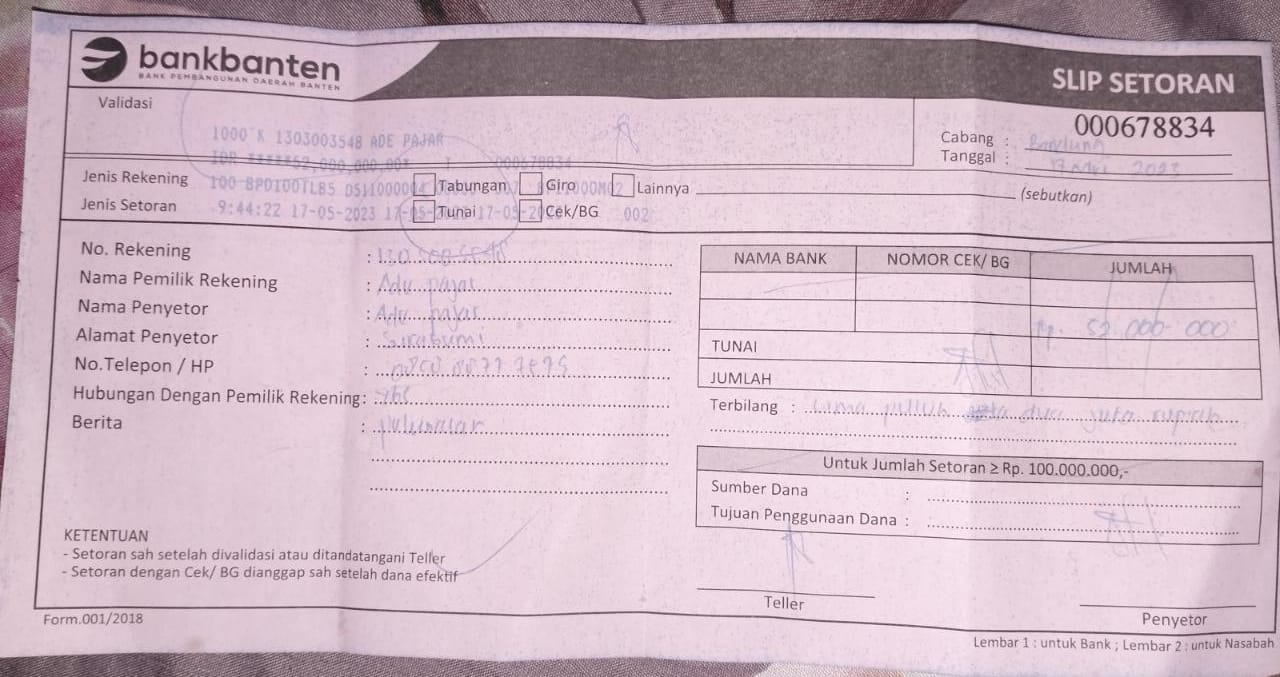 bankbanten
BANK PEMBANGUNAN DAERAH BANTEN
SLIP SETORAN
Validasi
000678834
1000 K 1303003548 ADE PAJAR
Cabang : Bandung
IDR ******52,000,000.00* 000678834
Tanggal : 17 Mei 2023
Jenis Rekening
100 BPD100TLB5 0511000004
Tabungan
Giro
Lainnya
(sebutkan)
Jenis Setoran
9:44:22 17-05-2023 17-05-2023 17-05-20 002
Tunai
Cek/BG
No. Rekening :
Nama Pemilik Rekening : Ade pajar
Nama Penyetor : Ade pajar
Alamat Penyetor : Sukabumi
No.Telepon / HP :
Hubungan Dengan Pemilik Rekening:
Berita :
NAMA BANK
NOMOR CEK/ BG
JUMLAH
Rp. 52.000.000
TUNAI
JUMLAH
Terbilang : Lima puluh dua juta rupiah
Untuk Jumlah Setoran ≥ Rp. 100.000.000,-
Sumber Dana :
Tujuan Penggunaan Dana :
KETENTUAN
- Setoran sah setelah divalidasi atau ditandatangani Teller
- Setoran dengan Cek/ BG dianggap sah setelah dana efektif
Teller
Penyetor
Form.001/2018
Lembar 1 : untuk Bank ; Lembar 2 : untuk Nasabah